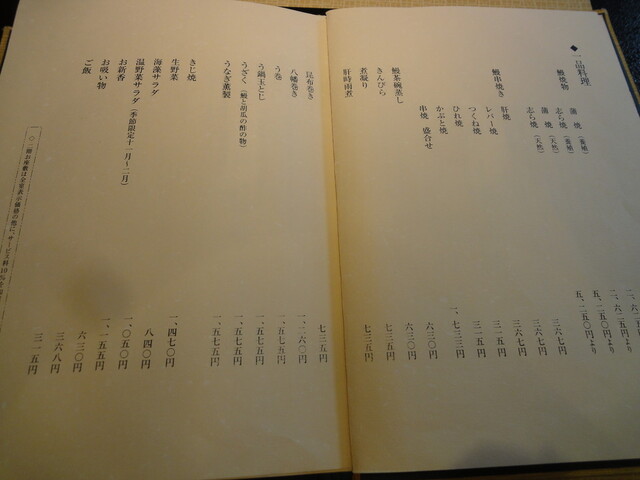 ◆一品料理
鰻焼物 蒲焼(養殖) 二、六二五
志ら焼(養殖) 二、六二五円より
蒲焼(天然) 五、二五〇円より
志ら焼(天然) 五、二五〇円より
鰻串焼き 肝焼 三六七円
レバー焼 三六七円
つくね焼 三六七円
ひれ焼 三一五円
かぶと焼 三一五円
串焼 盛合せ 一、七三三円
鰻茶碗蒸し 六三〇円
きんぴら 六三〇円
煮凝り 七三五円
肝時雨煮 七三五円
昆布巻き 七三五円
八幡巻き 一、二六〇円
う巻 一、五七五円
う鍋玉とじ 一、五七五円
うざく(鰻と胡瓜の酢の物) 一、五七五円
うなぎ薫製 一、五七五円
きじ焼 一、四七〇円
生野菜 八四〇円
海藻サラダ 一、〇五〇円
温野菜サラダ(季節限定十一月〜二月) 一、一五五円
お新香 六三〇円
お吸い物 三六八円
ご飯 三一五円
◇二階お座敷は全室表示価格の他に、サービス料10%を